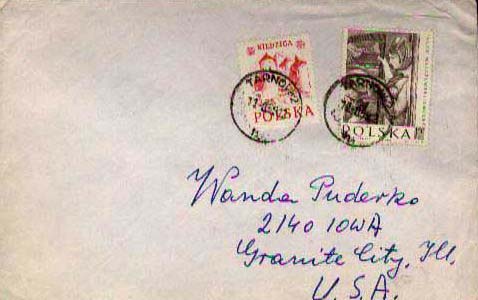 KILDZIGA
POLSKA
POLSKA
Wanda Puderko
2140 IOWA
Granite City, Ill.
U.S.A.